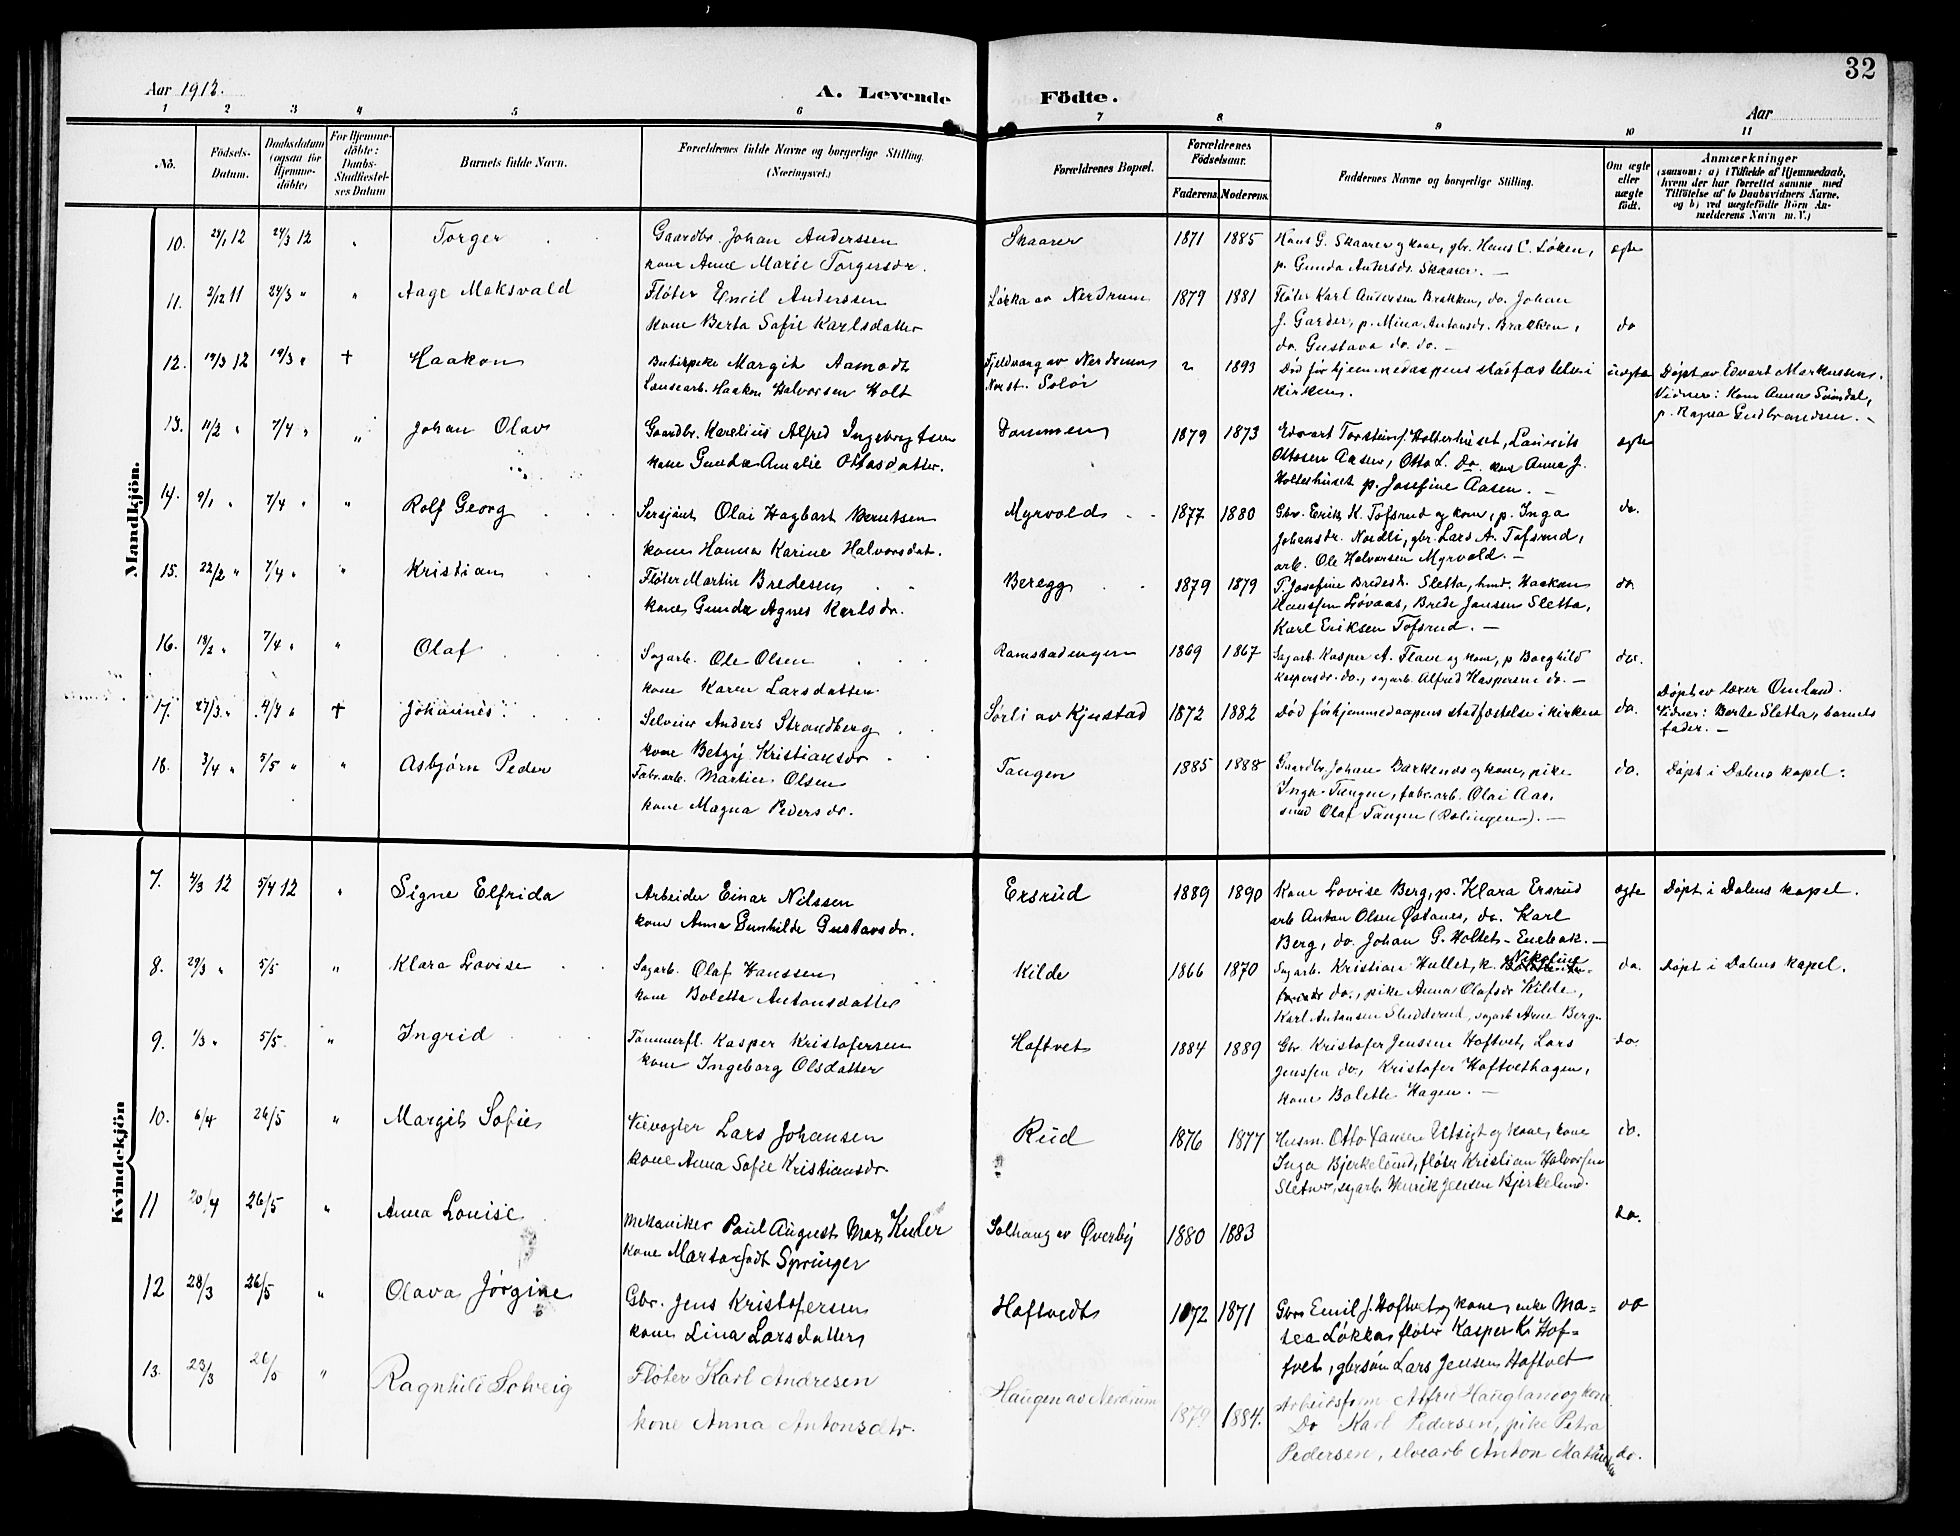 32
Aar 1912.
A. Levende Födte.
Aar
1 2 3 4 5 6 7 8 9 10 11
No.
Födsels-Datum.
Daabsdatum (ogsaa for Hjemmedöbte)
For Hjemmedöbte: Daabs-Stadfæstelses Datum
Barnets fulde Navn.
Forældrenes fulde Navne og borgerlige Stilling. (Næringsvei.)
Forældrenes Bopæl.
Forældrenes Födselsaar.
Faderens. Moderens.
Faddernes Navne og borgerlige Stilling.
Om ægte eller uægte födt.
Anmærkninger
(saasom: a) i Tilfælde af Hjemmedaab,
hvem der har forrettet samme med
Tilföielse af to Daabsvidners Navne,
og b) ved uægtefödte Börn An-
melderens Navn m. V.)
Mandkjön.
10. 24/3 12 " Torger Gaardbr. Johan Anderssen Skaarer 1871 1885 Hans G. Skaarer og kone, gbr. Hans C. Løken, ægte
kone Anne Marie Torgersdr. p. Gunda Andersdr. Skaarer. —
11. 2/12 11 24/3 " " Aage Maksvald Fløter Emil Anderssen Løkka av Nerdrum 1879 1881 Fløter Karl Andersen Brakken, do. Johan
kone Berta Sofie Karlsdatter J. Garder, p. Mina Antonsdr. Brakken, do
do. Gustava do. do. —
12. 19/3 12 19/3 " + Haakon Butikpike Margit Aamodt Fjeldvang av Nerdrum " 1893 Død før hjemmedaapens stadfæstelse i uægte Døpt av Edvart Markussen.
Haakon Halvorsen Holt Solør kirken. Vidner: Kone Anna
p. Ragna Gudbrandsen. —
13. 11/2 " 7/4 " " Johan Olav Gaardbr. Karelius Alfred Ingebregtsen Dammen 1879 1873 Edvart Torstens. Holterhuset, Laurits ægte
kone Gunda Amalie Ottosdatter. Ottosen Aasen, Otto L. do. kone Anna J.
Holterhuset p. Josefine Aasen. —
14. 9/1 " 7/4 " " Rolf Georg Sersjant Olai Hagbart Berntsen Myrvold 1877 1880 Gbr. Erik K. Tofsrud og kone, p. Inga do.
kone Hanna Karine Halvorsdat. Johansdr. Nordli, gbr. Lars A. Tofsrud,
arb. Ole Halvorsen Myrvold. —
15. 22/2 " 7/4 " " Kristian Fløter Martin Bredesen Beregg 1879 1879 P. Josefine Bredesdr. Sletta, Haakon do.
kone Gunda Agnes Karlsdr. Hanssen Løvaas, Brede Janssen Sletta,
Karl Eriksen Tofsrud. —
16. 7/4 " " Olaf Sagarb. Ole Olsen Ramstadengen 1869 1867 Sagarb. Kasper A. Flaen og kone, p Borghild do.
kone Karen Larsdatter. Kaspersdr. do., sagarb. Alfred Kaspersen do. —
17. 27/3 " " + Johannes Selveier Anders Strandberg Sørli av Kjustad 1872 1882 Død før hjemmedaapens stadfæstelse i kirken do. Døpt av lærer Omland.
kone Betzy Kristiansdr Vidner: Berte Sletta, barnets
fader. —
18. 3/4 " 5/5 " " Asbjørn Peder Fabr.arb. Martin Olsen Tangen 1885 1888 Gaardbr. Johan Barkenæs og kone, pike do. Døpt i Dalens kapel.
kone Magna Pedersdr. Inga Tangen, fabr.arb. Olai Aas,
Olaf Tangen (Rælingen). —
Kvindekjön
7. 4/3 12 5/4 12 " Signe Elfrida Arbeider Einar Nilssen Ersrud 1889 1890 Kone Lovise Berg, p. Klara Ersrud ægte Døpt i Dalens kapel.
kone Anna Gunhilde Gustavsdr. arb Anton Olsen Østanes, do. Karl
Berg, do. Johan G. Holtet - Enebak. —
8. 29/3 " 5/5 " Klara Lovise Sagarb. Olaf Hanssen Kilde 1866 1870 Sagarb. Kristian Hullet, k. Nikoline do. Døpt i Dalens kapel.
kone Bolette Antonsdatter do., pike Anna Olafsdr Kilde,
Karl Antonsen Sludderud, sagarb Arne Berg.
9. 1/3 " 5/5 " Ingrid Tømmerfl. Kasper Kristofersen Hoftvet 1884 1889 Gbr. Kristofer Jensen Hoftvet, Lars do.
kone Ingeborg Olsdatter Jenssen do., Kristofer Hoftvethagen,
kone Bolette Hagen. —
10. 6/4 26/5 " Margit Sofie Veivogter Lars Johansen Rud 1876 1877 Husm. Otto Larsen Utsigt og kone, kone do.
kone Anna Sofie Kristiansdr. Inga Bjerkelund, fløter Kristian Halvorsen
Sletner, sagarb. Henrik Jensen Bjerkelund.
11 20/4 26/5 " Anna Louise Mekaniker Paul August Max Kuler Solhaug av Øverby 1880 1883 do.
kone Marta født Springer
12 28/3 26/5 " Olava Jørgine Gbr. Jens Kristofersen Hoftvedt 1872 1871 Gbr. Emil J. Hoftvet og kone, enke Ma= do
kone Lina Larsdatter tea Løkka, fløter Kasper K. Hof=
tvet, gbrsøn Lars Jensen Hoftvet
13. 23/3 " Ragnhild Solveig Fløter Karl Andresen Haugen av Nerdrum 1879 1884. Arbeidsform. Alfred Haugland og kone
kone Anna Antonsdtr. Do Karl Pedersen, pike Petra
Pedersen, elvearb Anton Mathisen do.